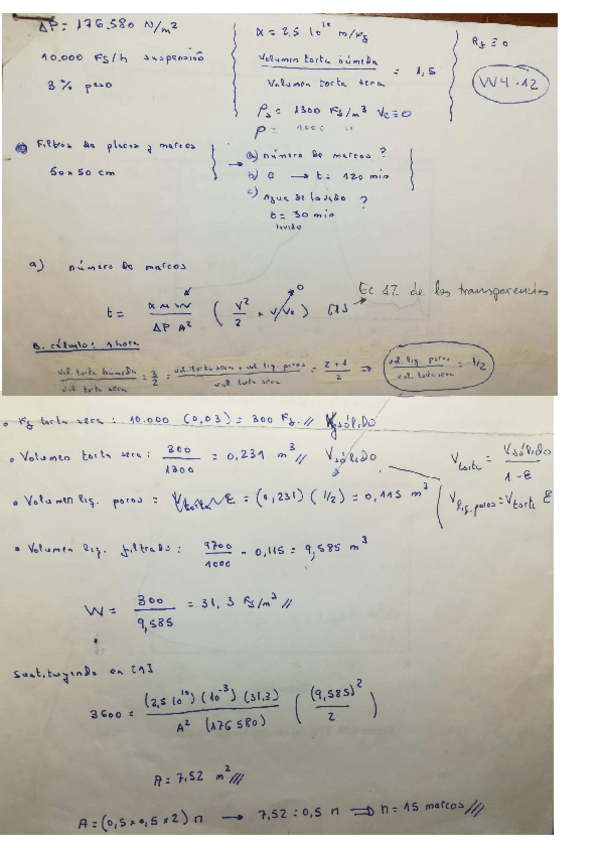 ΔP = 176.580 N/m²
10.000 Kg/h suspensión
3% peso
α = 2,5 10¹⁰ m/Kg
volumen torta húmeda / volumen torta seca = 1,5
ρs = 1300 Kg/m³ Ve ≡ 0
ρ = 1000 "
Rf ≡ 0
W4.12
Filtros de placas y marcos
50 x 50 cm
a) número de marcos ?
b) e → t = 120 min
c) Agua de lavado ?
t = 30 min
lavado
a) número de marcos
t = α μ W / ΔP A² ( V²/2 + V Ve ) [1] → Ec 12 de las transparencias
0
B. cálculo: 1 hora
vol. torta húmeda / vol. torta seca = 3/2 = vol. torta seca + vol. liq. poros / vol. torta seca = 2+1 / 2 ⇒ vol. liq. poros / vol. torta seca = 1/2
• Kg torta seca : 10.000 (0,03) = 300 Kg // Kg sólido
• Volumen torta seca : 300/1300 = 0,231 m³ // Vsólido
Vtorta = Vsólido / 1-ε
• Volumen liq. poros = Vtorta ε = (0,231) (1/2) = 0,115 m³
Vliq.poros = Vtorta ε
• Volumen liq. filtrado : 9700/1000 - 0,115 = 9,585 m³
W = 300 / 9,585 = 31,3 Kg/m³ //
Sustituyendo en [1]
3600 = (2,5 10¹⁰) (10⁻³) (31,3) / A² (176580) ( (9,585)² / 2 )
A = 7,52 m² ///
A = (0,5 x 0,5 x 2) n → 7,52 = 0,5 n ⇒ n = 15 marcos ///